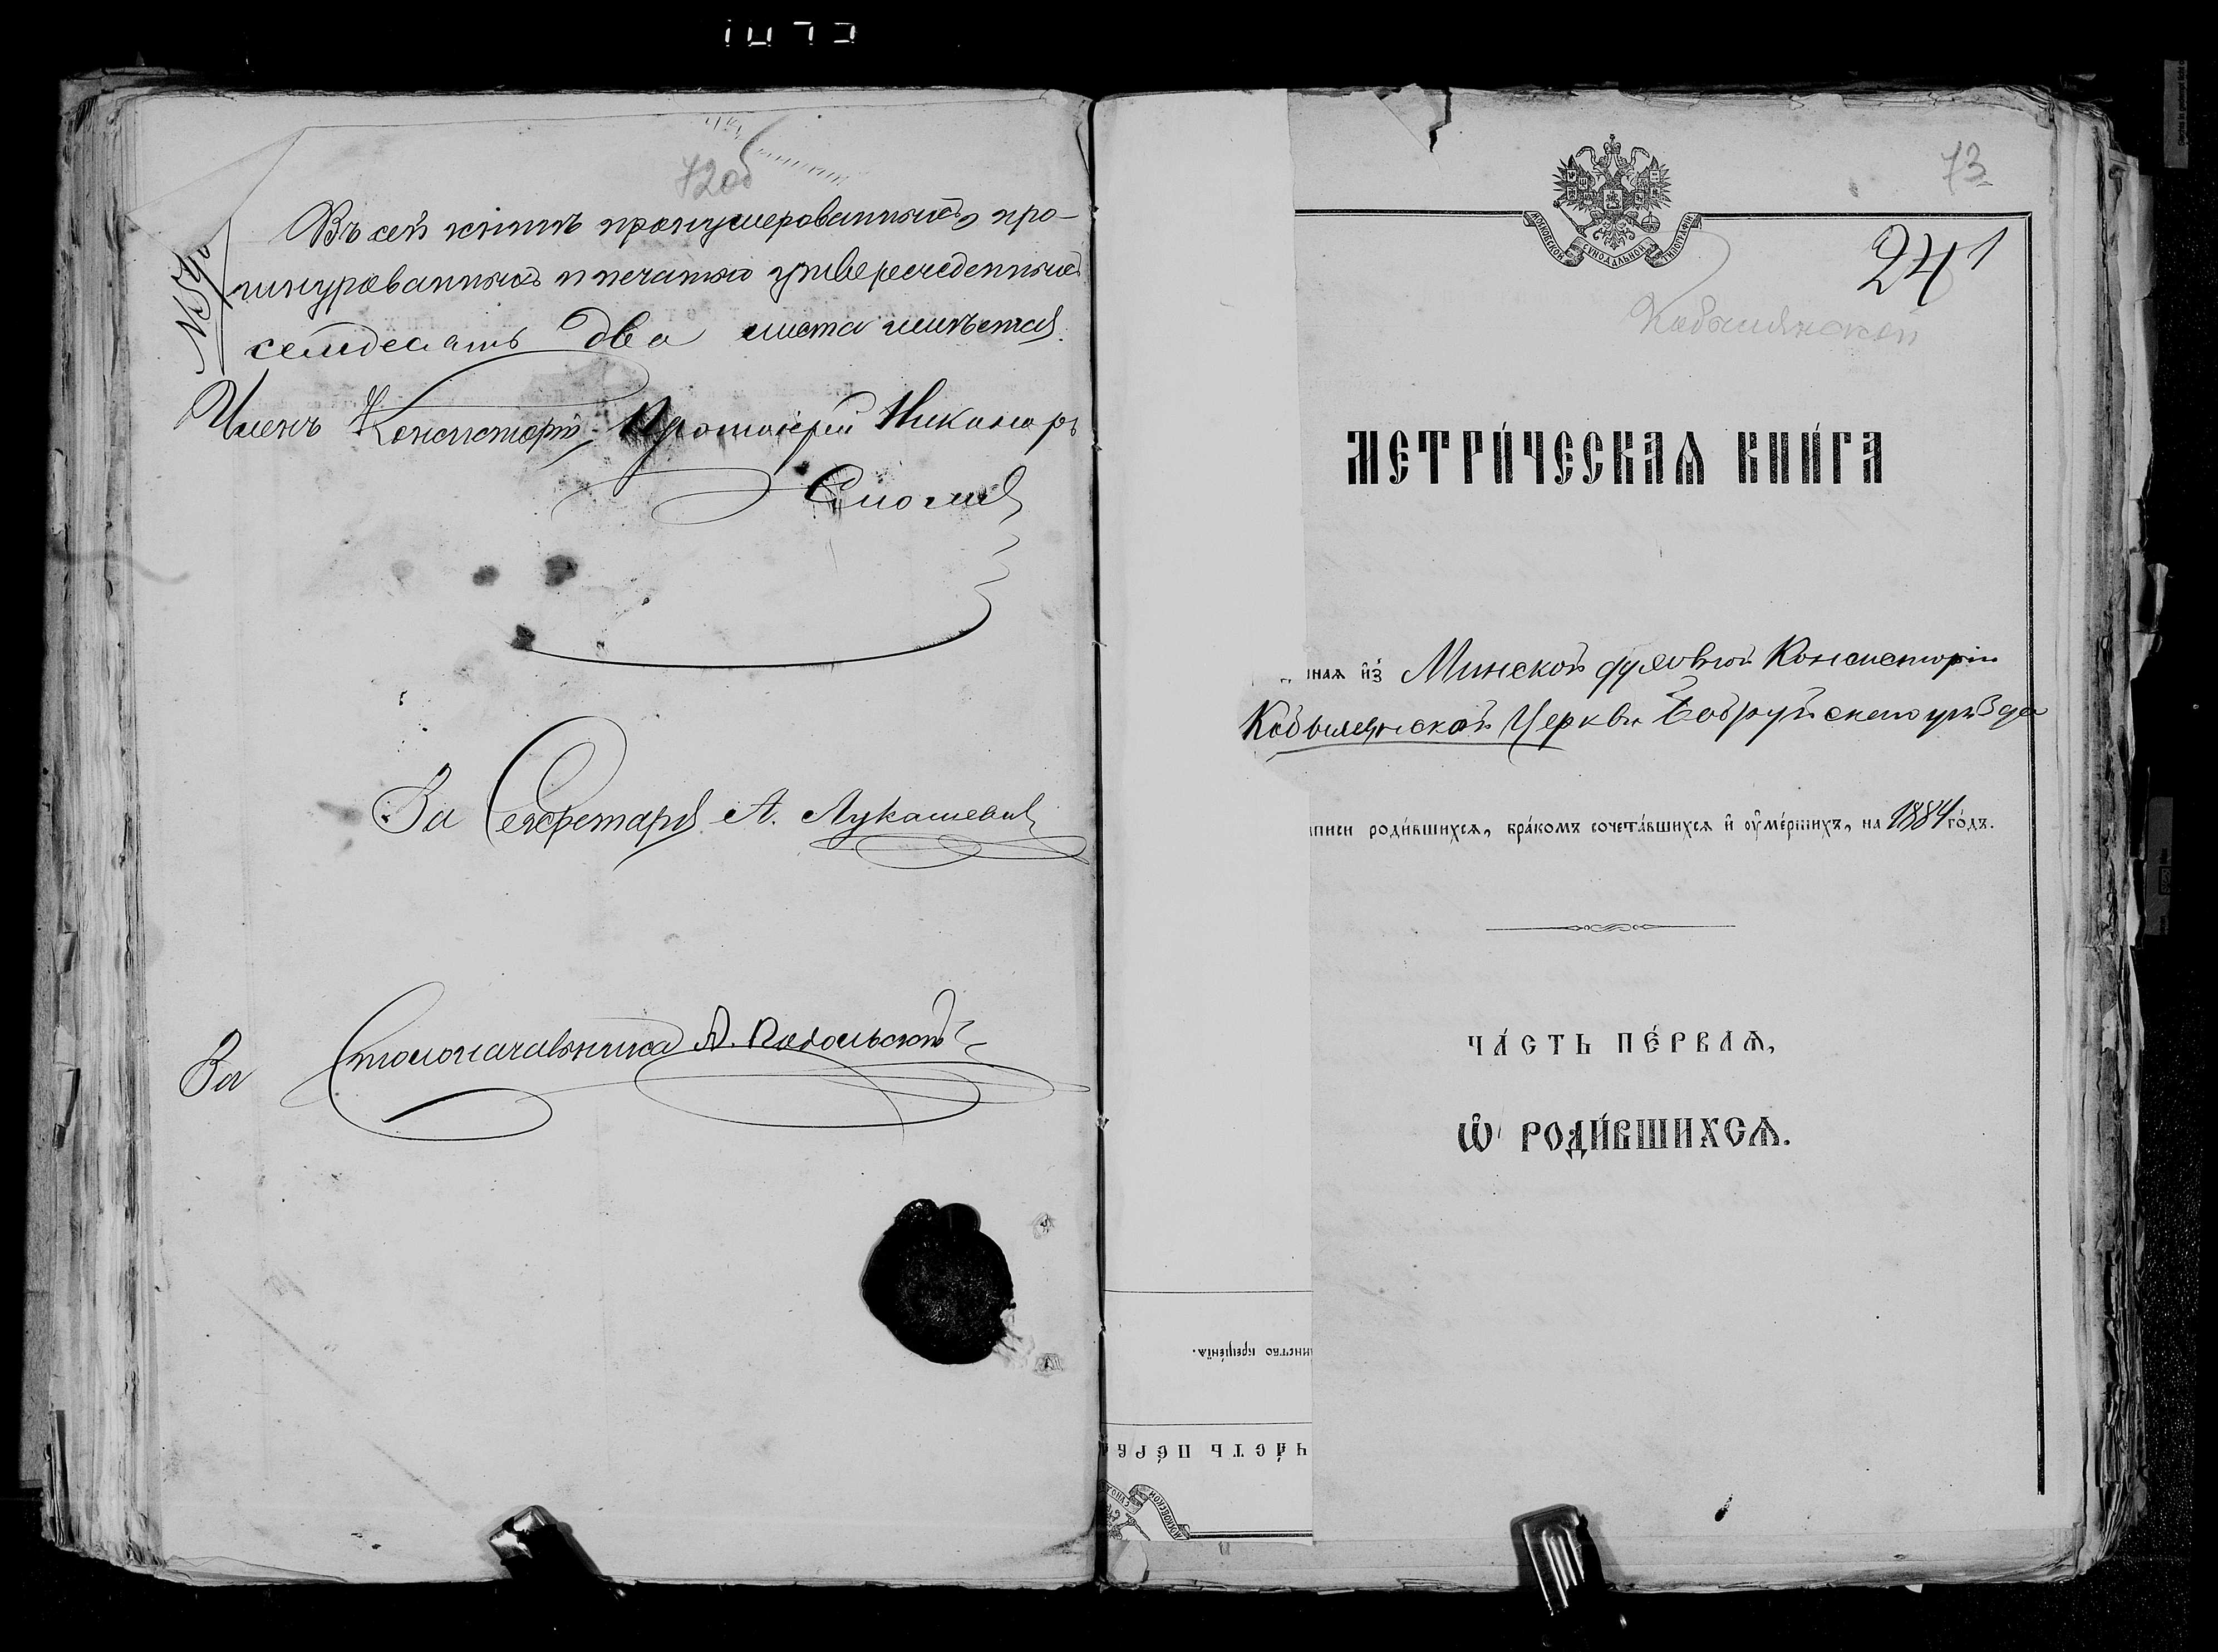 72об
Въ сей книгѣ пронумерованныхъ, про-
шнурованныхъ и печатью утвержденныхъ
семдесятъ два листа имѣется.
Членъ Консисторіи, Протоіерей Никаноръ
Смолич
За Секретаря А. Лукашевич
За Столоначальника А. Подольскій
73
МОСКОВСКОЙ СѴНОДАЛЬНОЙ ТИПОГРАФІИ
241
Кобылянской
МЕТРИ́ЧЕСКАѦ КНИ́ГА
ннаѧ и҆з̾ Минской духовной Консисторіи
Кобылянской Церкви Бобруйскаго уѣзда
аписи роди́вшихсѧ, бра́комъ сочета́вшихсѧ и҆ ѹ҆ме́ршихъ, на 1884 го́дъ.
ЧА́СТЬ ПЕ́РВАѦ,
Ѡ҆ РОДИ́ВШИХСѦ.
инство креще́нїѧ.
ЧА́СТЬ ПЕ́РВА
МОСКОВСКОЙ